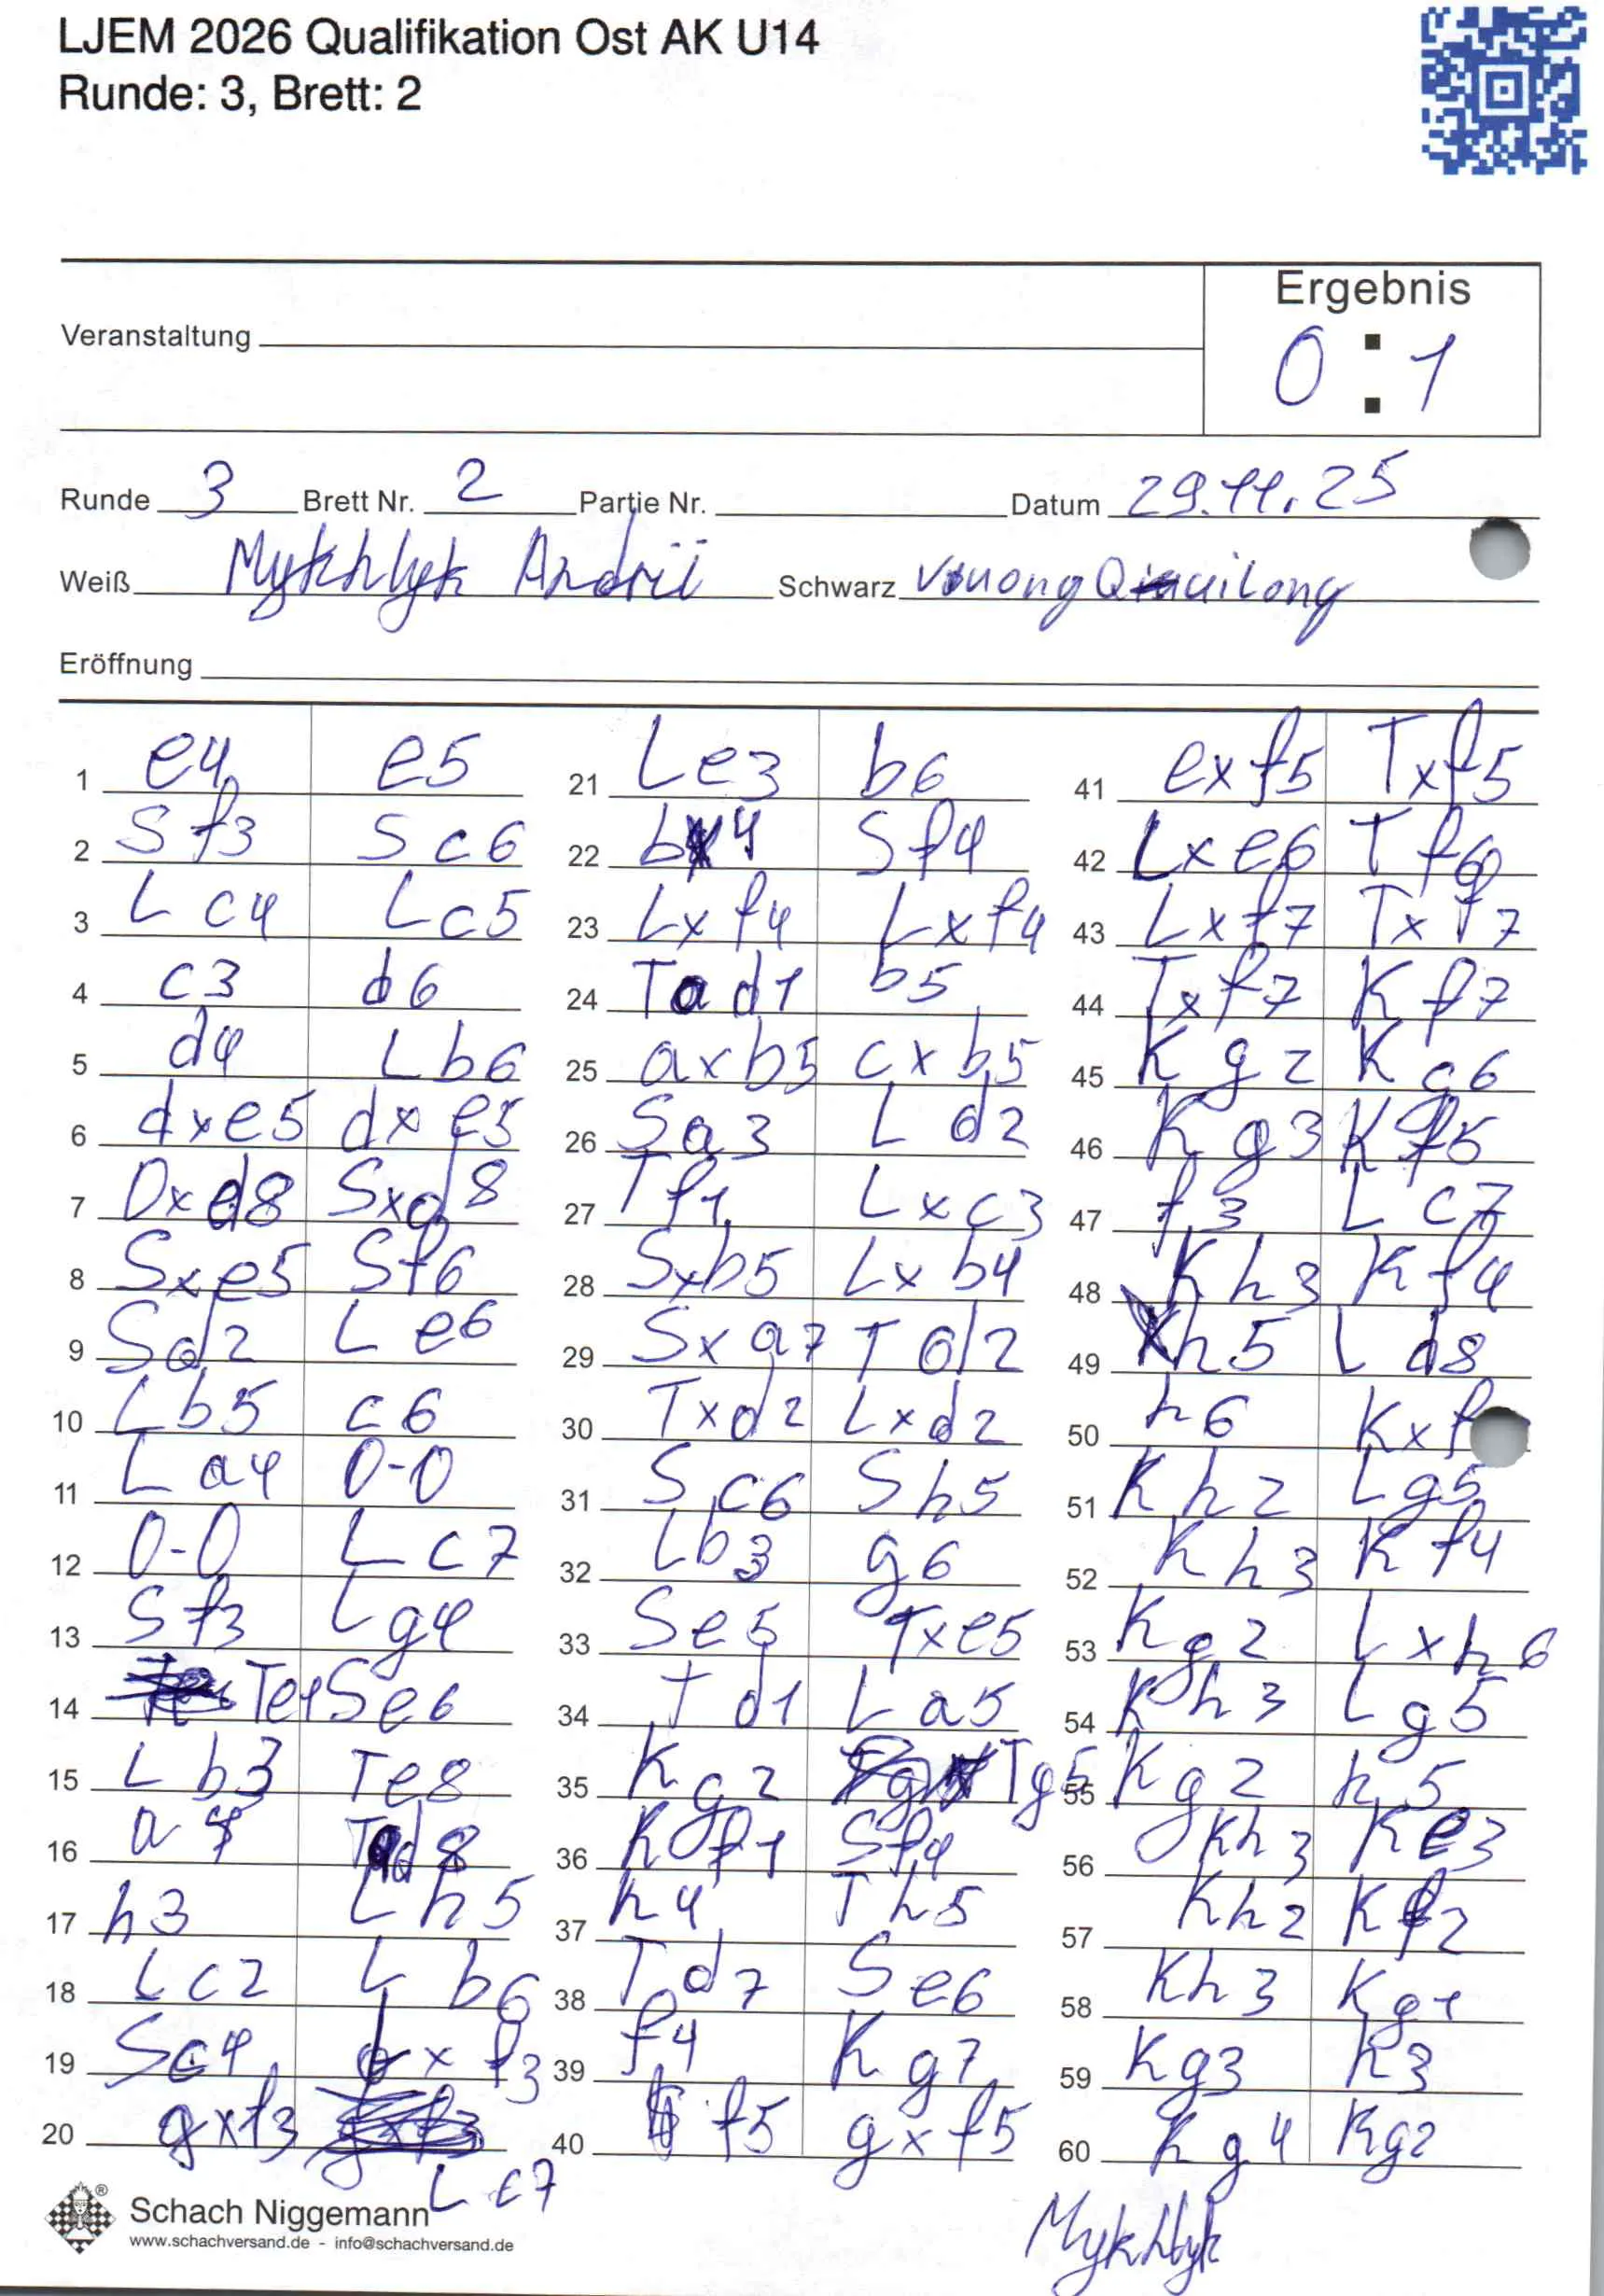 LJEM 2026 Qualifikation Ost AK U14
Runde: 3, Brett: 2
Ergebnis
0 : 1
Veranstaltung
Runde 3 Brett Nr. 2 Partie Nr. Datum 29.11.25
Weiß Mykhlyk Andrii Schwarz Vuong Quilong
Eröffnung
1 e4 e5
2 Sf3 Sc6
3 Lc4 Lc5
4 c3 d6
5 d4 Lb6
6 dxe5 dxe5
7 Dxd8 Sxd8
8 Sxe5 Sf6
9 Sd2 Le6
10 Lb5 c6
11 La4 0-0
12 0-0 Lc7
13 Sf3 Lg4
14 Te1 Se6
15 Lb3 Te8
16 a4 Tad8
17 h3 Lh5
18 Lc2 Lb6
19 Sc4 Lxf3
20 gxf3 Lc7
21 Le3 b6
22 b4 Sf4
23 Lxf4 Lxf4
24 Tad1 b5
25 axb5 cxb5
26 Sa3 Ld2
27 Tf1 Lxc3
28 Sxb5 Lxb4
29 Sxa7 Td2
30 Txd2 Lxd2
31 Sc6 Sh5
32 Lb3 g6
33 Se5 Txe5
34 Td1 La5
35 Kg2 Tg5
36 Kf1 Sf4
37 h4 Th5
38 Td7 Se6
39 f4 Kg7
40 f5 gxf5
41 exf5 Txf5
42 Lxe6 Tf6
43 Lxf7 Txf7
44 Txf7 Kf7
45 Kg2 Kg6
46 Kg3 Kf5
47 f3 Lc7
48 Kh3 Kf4
49 h5 Ld8
50 h6 Kxf
51 Kh2 Lg5
52 Kh3 Kf4
53 Kg2 Lxh6
54 Kh3 Lg5
55 Kg2 h5
56 Kh3 Ke3
57 Kh2 Kf2
58 Kh3 Kg1
59 Kg3 h3
60 Kg4 Kg2
Schach Niggemann®
www.schachversand.de - info@schachversand.de
Mykhlyk